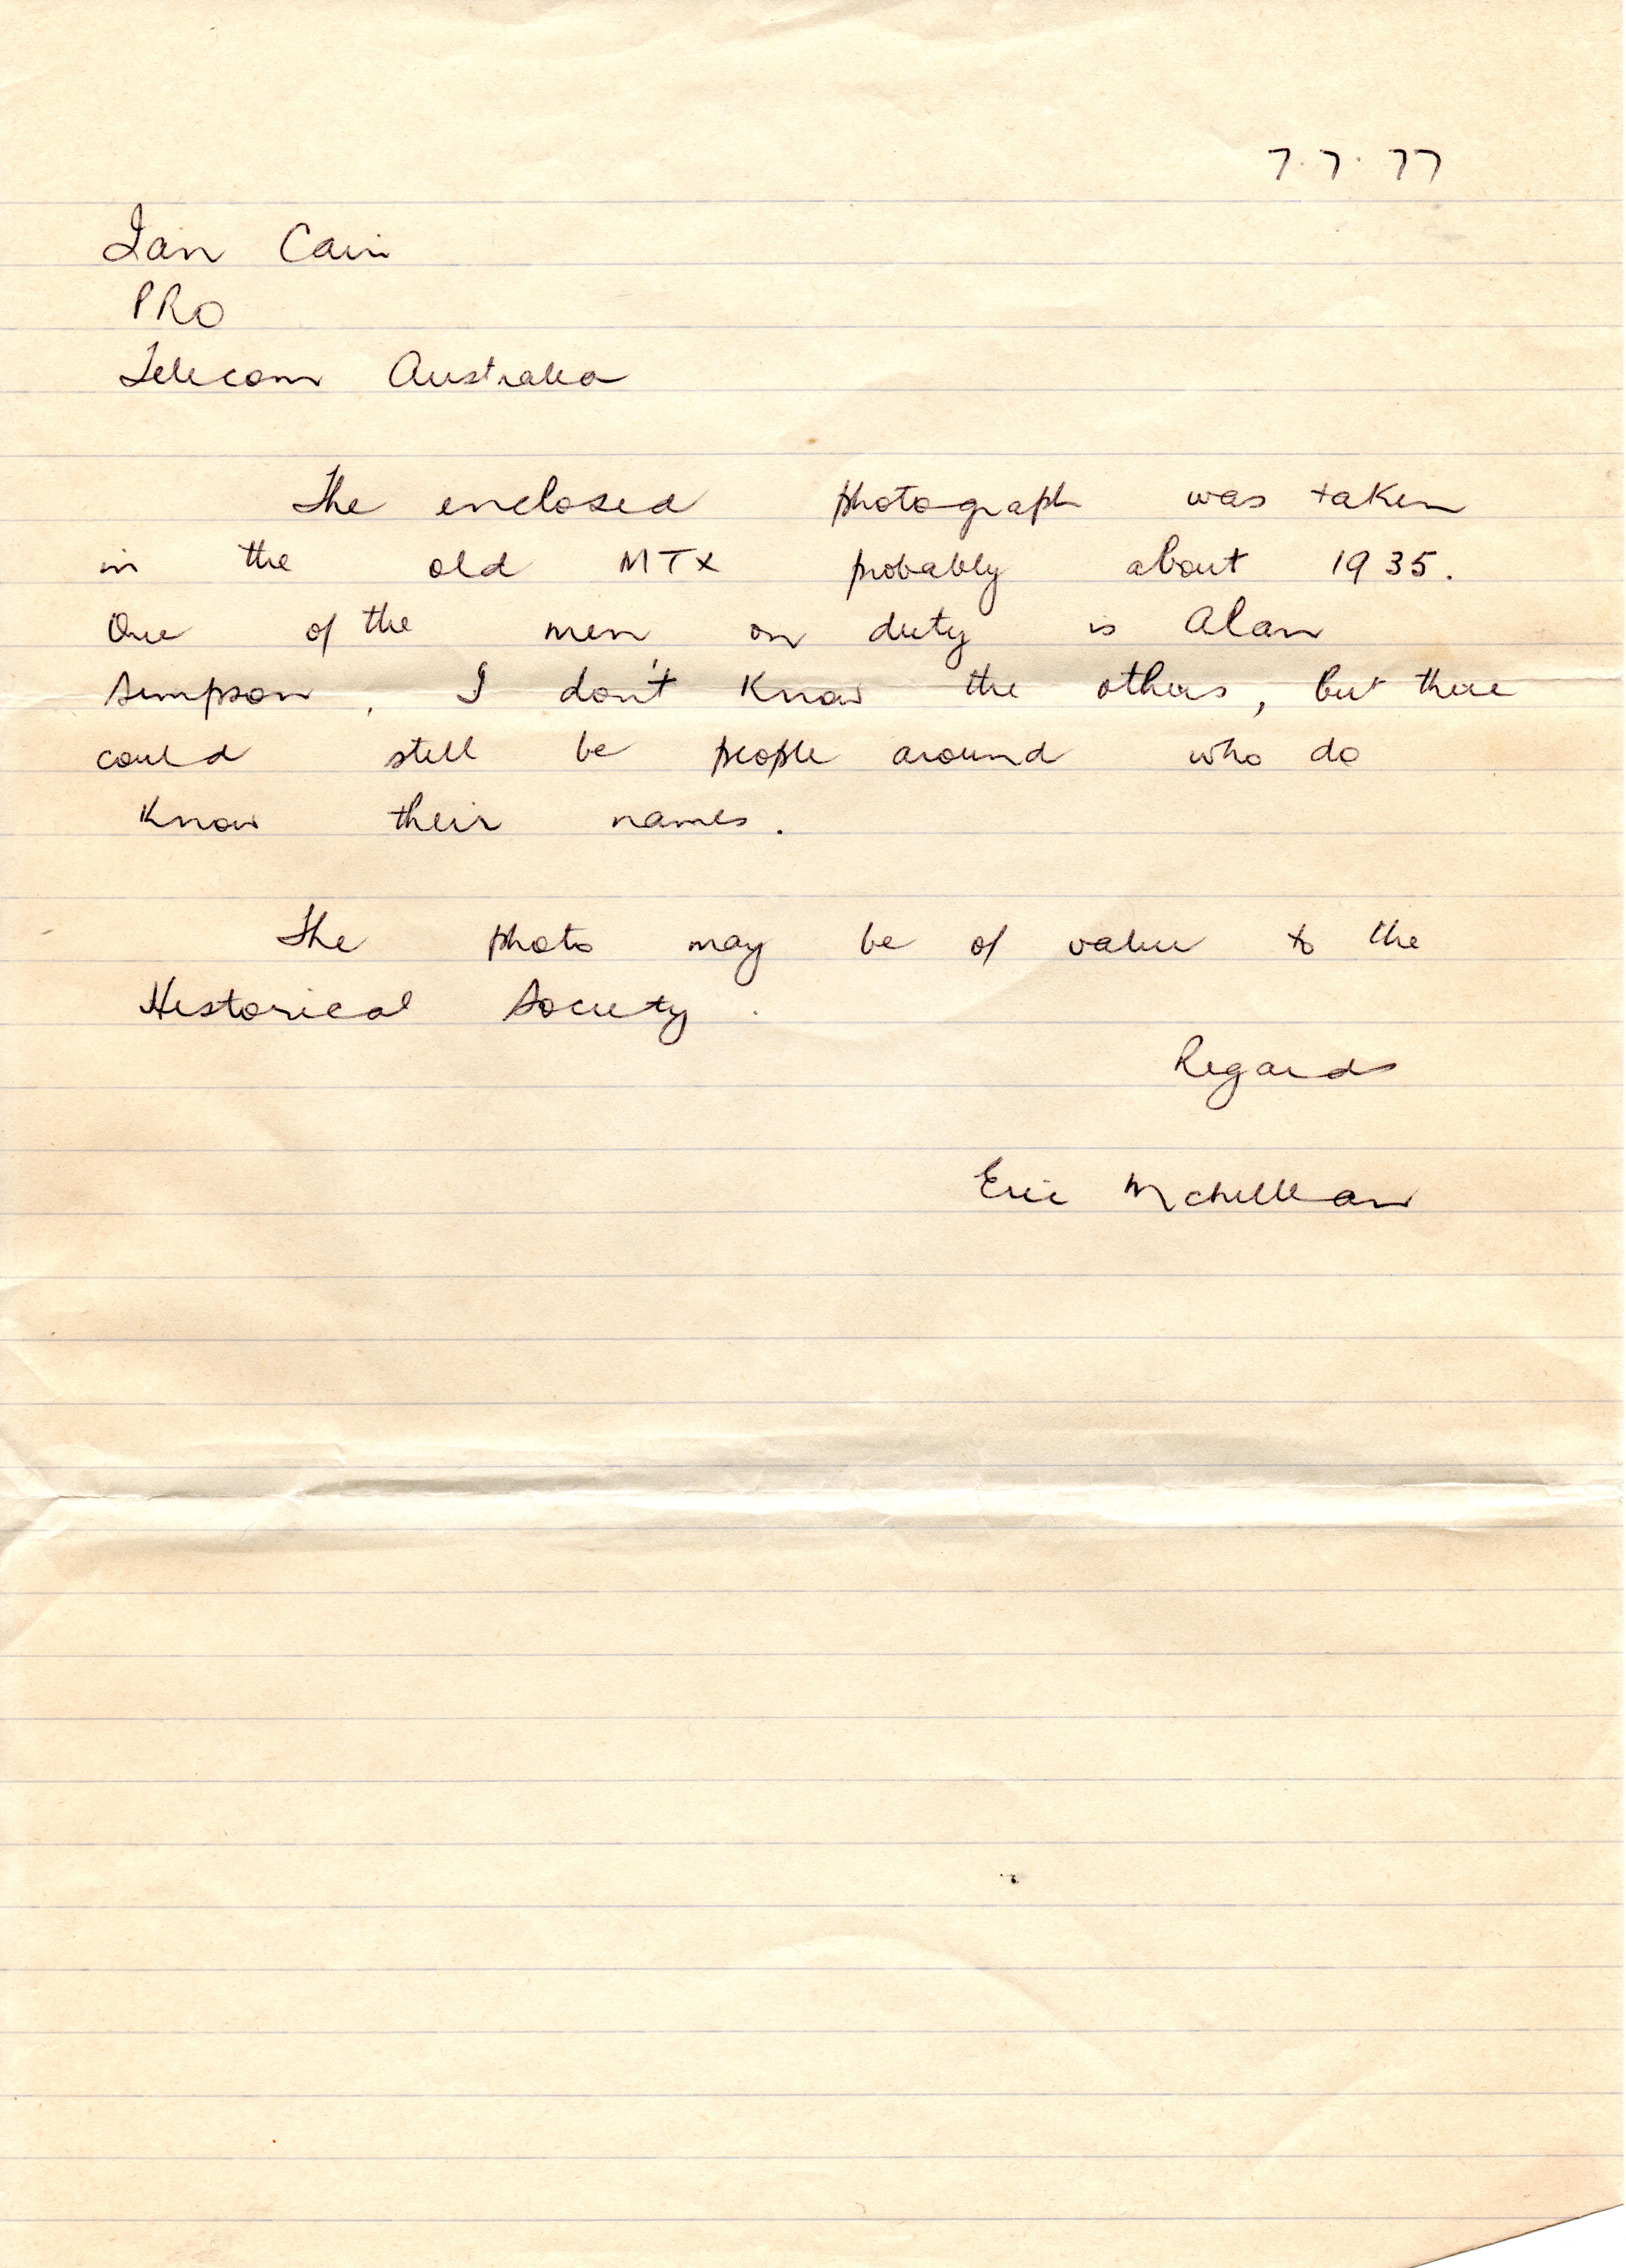 7.7.77
Ian Cain
PRO
Telecom Australia
The enclosed photograph was taken
in the old MTX probably about 1935.
One of the men on duty is Alan
Simpson, I don't know the others, but there
could still be people around who do
know their names.
The photo may be of value to the
Historical Society.
Regards
Eric